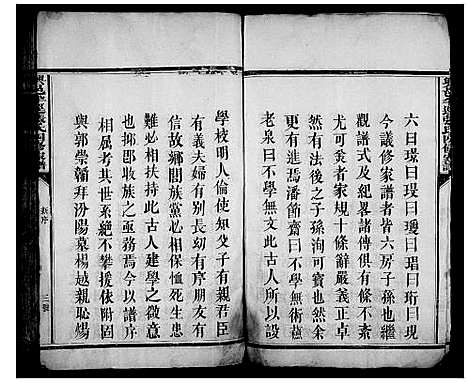 六曰璟曰琝曰璦曰瑁曰珩曰現
今議修家譜者皆六房子孫也繼
觀譜式及畧諸傳俱有條不紊
尤可羨者家規十條辭嚴義正卓
然有法後之子孫洵可寶也然余
更有進焉潘節齋曰不學無術蘇
老泉曰不學無文此古人所以設
學校明人倫使知父子有親君臣
有義夫婦有别長幼有序朋友有
信故鄉閭族黨必相保恤死生患
難必相扶持此古人建學之微意
也抑卽收族之亟務焉今以譜序
相屬者考其世系絶不攀援依附固
與郭崇韜拜汾陽墓楊越親恥煬
新序
三